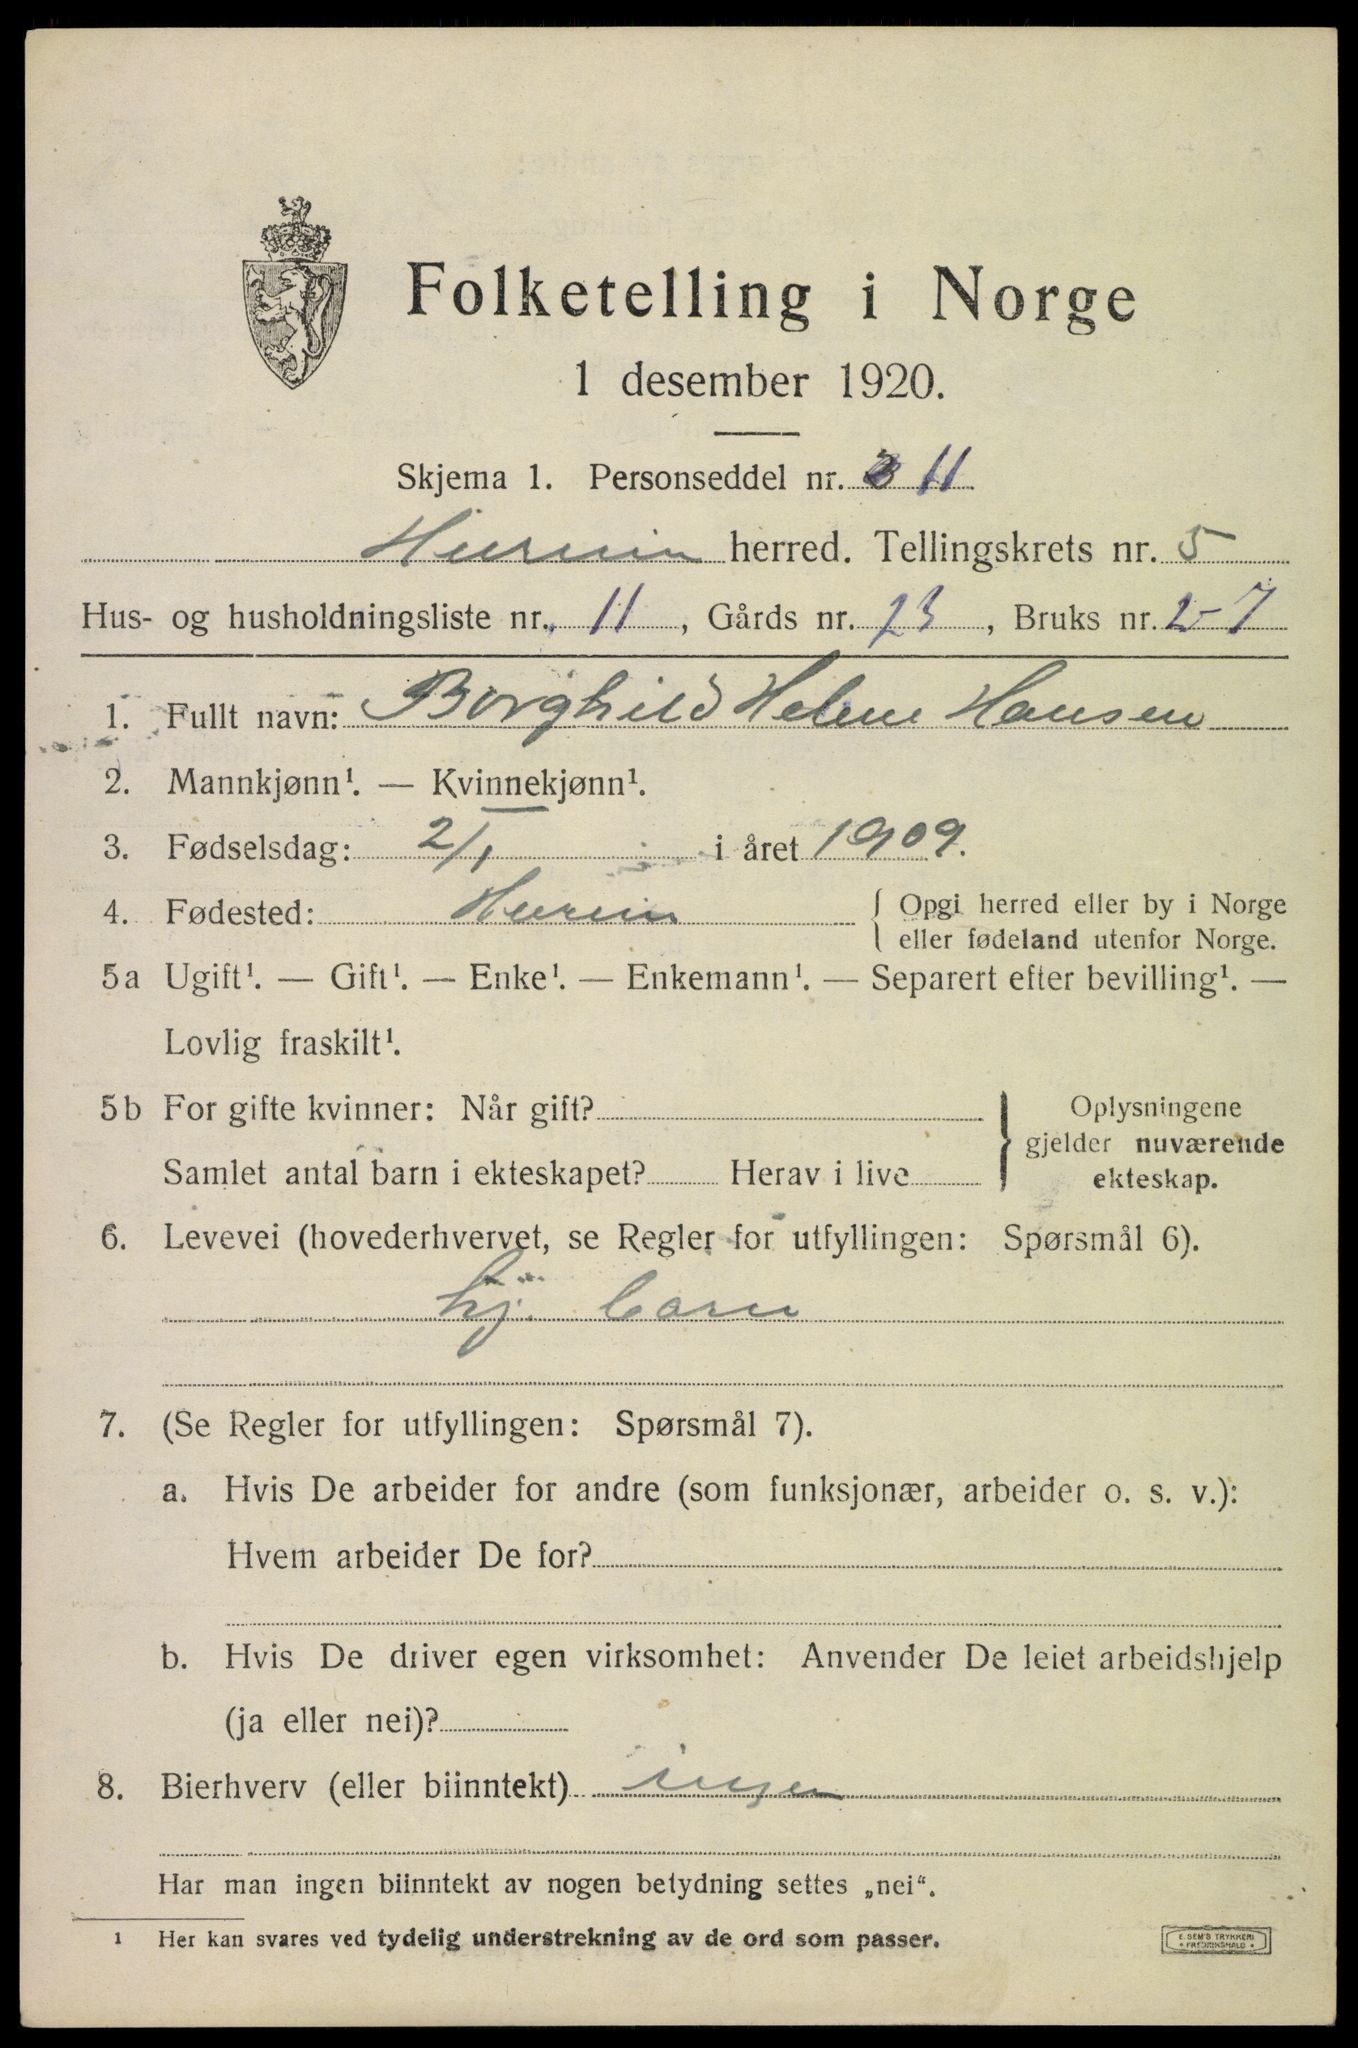 Folketelling i Norge
1 desember 1920.
Skjema 1. Personseddel nr. 11
Hurum herred. Tellingskrets nr. 5
Hus- og husholdningsliste nr. 11, Gårds nr. 23, Bruks nr. 2-7
1. Fullt navn: Borghild Helene Hansen
2. Mannkjønn¹. — Kvinnekjønn¹.
3. Fødselsdag: 2/1 i året 1909.
4. Fødested: Hurum { Opgi herred eller by i Norge
eller fødeland utenfor Norge.
5a Ugift¹. — Gift¹. — Enke¹. — Enkemann¹. — Separert efter bevilling¹. —
Lovlig fraskilt¹.
5b For gifte kvinner: Når gift? } Oplysningene
gjelder nuværende
Samlet antal barn i ekteskapet? Herav i live ekteskap.
6. Levevei (hovederhvervet, se Regler for utfyllingen: Spørsmål 6).
hj. barn
7. (Se Regler for utfyllingen: Spørsmål 7).
a. Hvis De arbeider for andre (som funksjonær, arbeider o. s. v.):
Hvem arbeider De for?
b. Hvis De driver egen virksomhet: Anvender De leiet arbeidshjelp
(ja eller nei)?
8. Bierhverv (eller biinntekt) ingen
Har man ingen biinntekt av nogen betydning settes „nei“.
1 Her kan svares ved tydelig understrekning av de ord som passer.
E. SEM'S TRYKKERI
• FREDRIKSHALD •